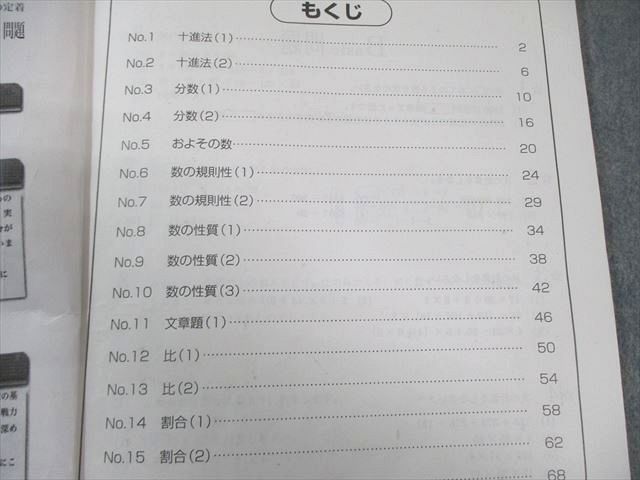 の定着
問題
もくじ
No.1 十進法(1) 2
No.2 十進法(2) 6
No.3 分数(1) 10
No.4 分数(2) 16
No.5 およその数 20
No.6 数の規則性(1) 24
No.7 数の規則性(2) 29
No.8 数の性質(1) 34
No.9 数の性質(2) 38
No.10 数の性質(3) 42
No.11 文章題(1) 46
No.12 比(1) 50
No.13 比(2) 54
No.14 割合(1) 58
No.15 割合(2) 62
68